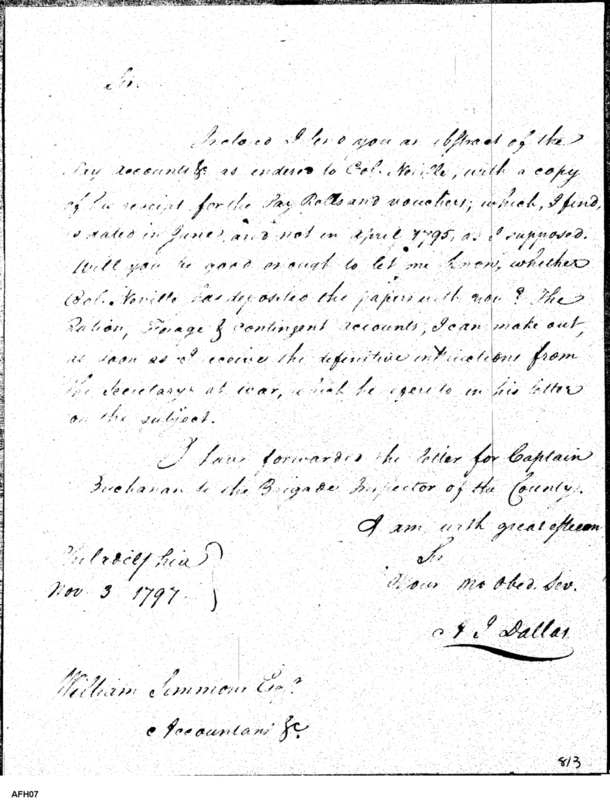 Sir.
Inclosed I send you an abstract of the
Pay accounts &c as rendered to Col. Neville, with a copy
of his receipt for the Pay Rolls and vouchers; which, I find,
is dated in June, and not in April 1795, as I supposed.
Will you be good enough to let me know, whether
Col. Neville has deposited the papers with you? The
Ration, Forage & Contingent accounts, I can make out,
as soon as I receive the definitive instructions from
the Secretary at war, which he refers to in his letter
on the subject.
I have forwarded the letter for Captain
Buchanan to the Brigade Inspector of the County.
I am, with great esteem
Sir
Your Mo Obed. Sev.
A J Dallas
Philadelphia
Nov 3 1797
William Simmons Esqr.
Accountant &c.
813
AFH07